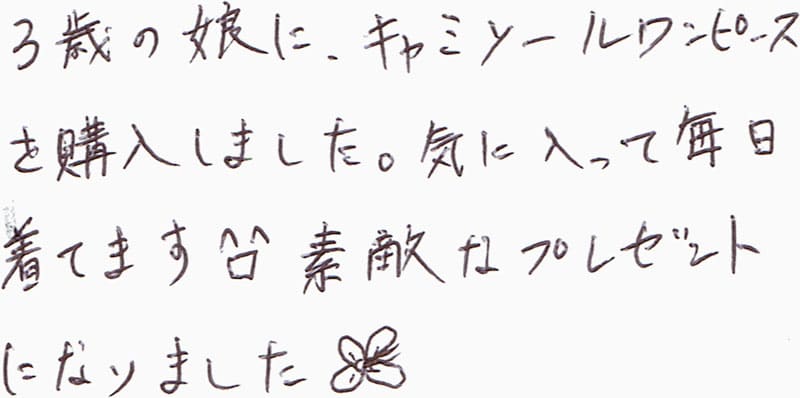 3歳の娘に、キャミソールワンピース
を購入しました。気に入って毎日
着てます^^素敵なプレゼント
になりました